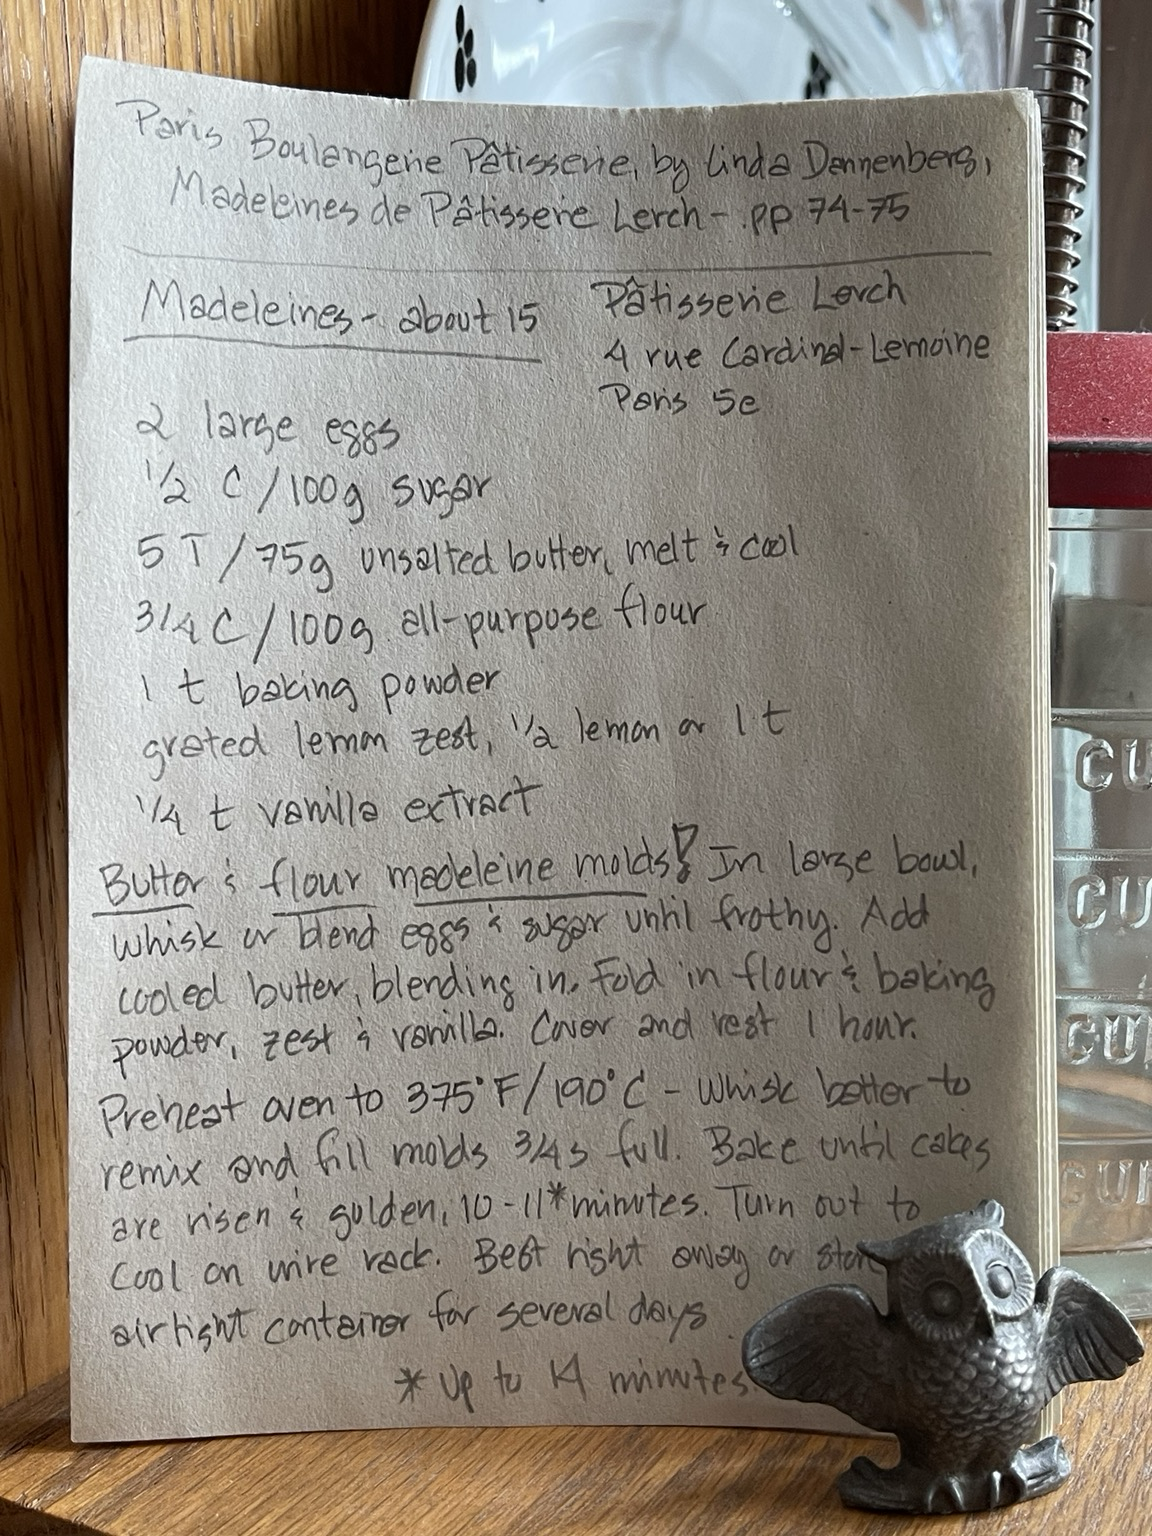 Paris Boulangerie Pâtisserie, by Linda Dannenberg,
Madeleines de Pâtisserie Lerch - pp 74-75
Madeleines - about 15
Pâtisserie Lerch
4 rue Cardinal-Lemoine
Paris 5e
2 large eggs
1/2 C/100g sugar
5 T/75g unsalted butter, melt & cool
3/4 C/100g all-purpose flour
1 t baking powder
grated lemon zest, 1/2 lemon or 1 t
1/4 t vanilla extract
Butter & flour madeleine molds! In large bowl,
whisk or blend eggs & sugar until frothy. Add
cooled butter, blending in. Fold in flour & baking
powder, zest & vanilla. Cover and rest 1 hour.
Preheat oven to 375°F/190°C - Whisk batter to
remix and fill molds 3/4s full. Bake until cakes
are risen & golden, 10-11* minutes. Turn out to
cool on wire rack. Best right away or
airtight container for several days.
* up to 14 minutes.
CU
CU
CU
CU